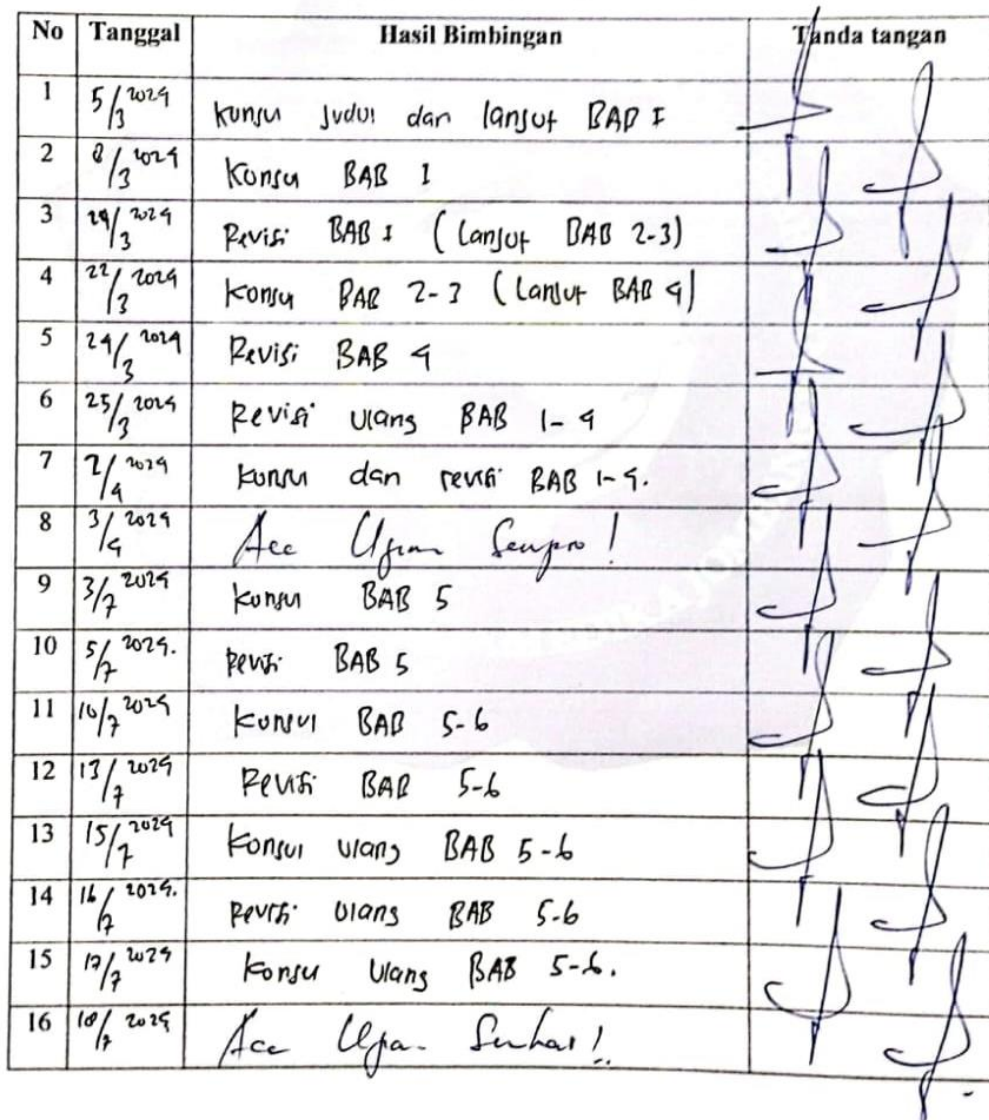 No Tanggal Hasil Bimbingan Tanda tangan
1 5/3 2024 Konsul Judul dan lanjut BAB I
2 8/3 2024 Konsul BAB I
3 2024 Revisi BAB I (Lanjut BAB 2-3)
4 22/3 2024 Konsul BAB 2-3 (Lanjut BAB 4)
5 24/3 2024 Revisi BAB 4
6 25/3 2024 Revisi ulang BAB 1-4
7 2/4 2024 Konsul dan revisi BAB 1-4.
8 3/4 2024 Acc Ujian Sempro!
9 3/7 2024 Konsul BAB 5
10 5/7 2024. Revisi BAB 5
11 10/7 2024 Konsul BAB 5-6
12 13/7 2024 Revisi BAB 5-6
13 15/7 2024 Konsul ulang BAB 5-6
14 16/7 2024. Revisi ulang BAB 5-6
15 17/7 2024 Konsul ulang BAB 5-6.
16 18/7 2024 Acc Ujian Semhas!